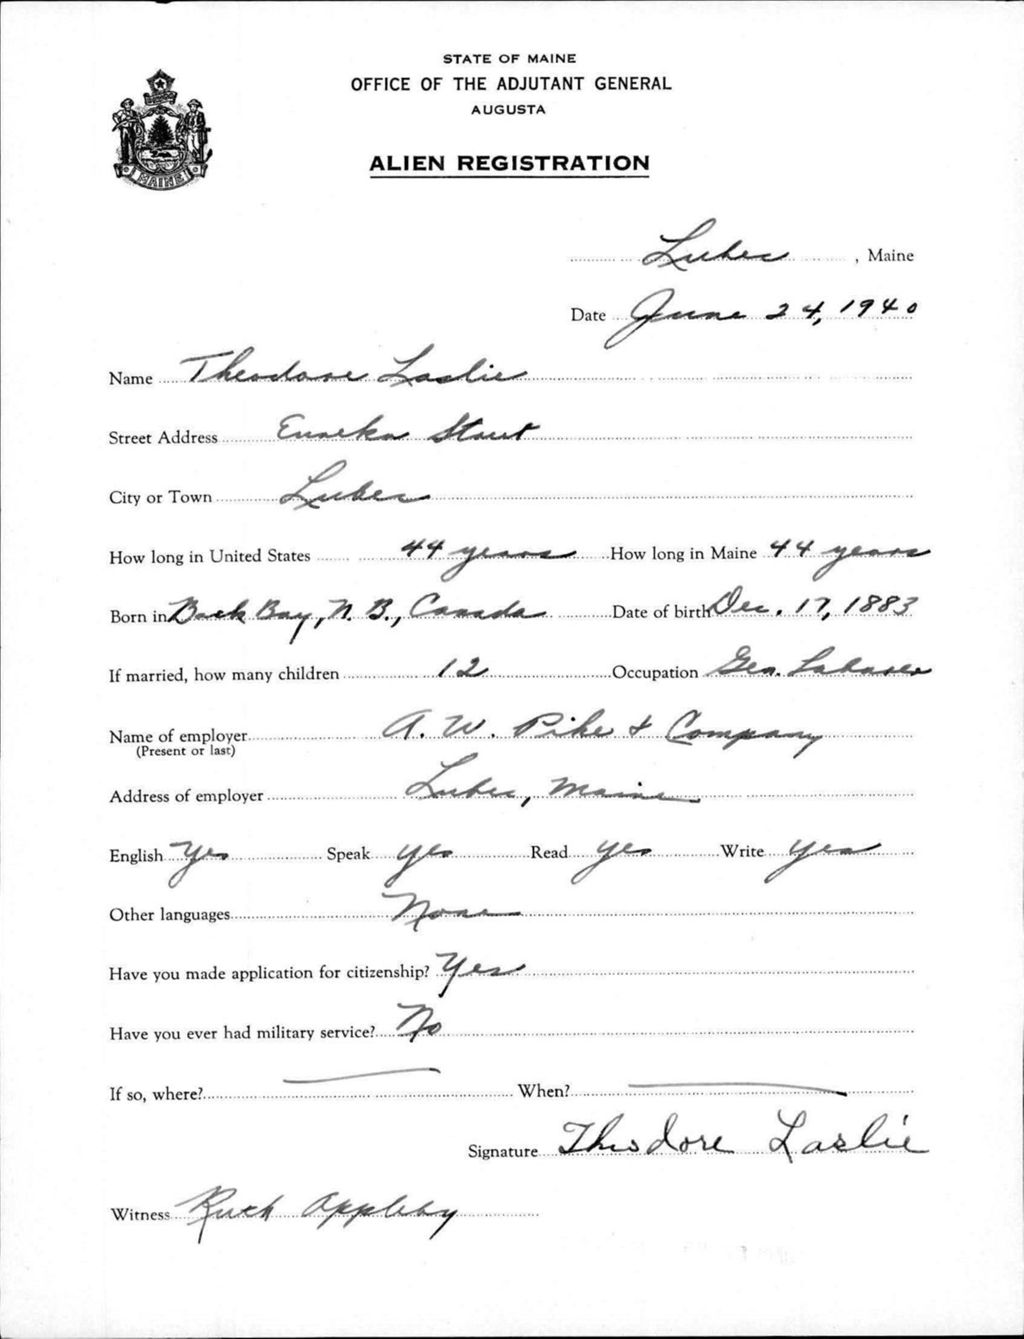 STATE OF MAINE
OFFICE OF THE ADJUTANT GENERAL
AUGUSTA
ALIEN REGISTRATION
MAINE
Lubec, Maine
Date June 24, 1940
Name Theodore Laslie
Street Address Eureka Street
City or Town Lubec
How long in United States 44 years How long in Maine 44 years
Born in Back Bay, N. B., Canada Date of birth Dec. 17, 1883
If married, how many children 12 Occupation Gen. Laborer
Name of employer A. W. Pike & Company
(Present or last)
Address of employer Lubec, Maine
English Yes Speak yes Read yes Write yes
Other languages None
Have you made application for citizenship? Yes
Have you ever had military service? No
If so, where? When?
Signature Theodore Laslie
Witness Ruth Appleby